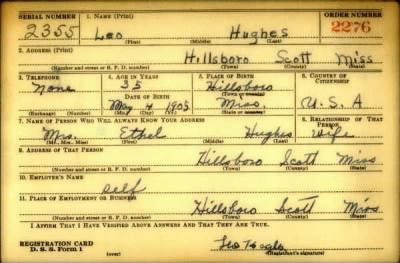 SERIAL NUMBER 1. NAME (Print) ORDER NUMBER
2355 Leo Hughes 2276
(First) (Middle) (Last)
2. ADDRESS (Print)
Hillsboro Scott Miss
(Number and street or R. F. D. number) (Town) (County) (State)
3. TELEPHONE 4. AGE IN YEARS 5. PLACE OF BIRTH 6. COUNTRY OF CITIZENSHIP
None 35 Hillsboro
DATE OF BIRTH (Town or county)
May 4 1905 Miss. U.S.A
(Exchange) (Number) (Mo.) (Day) (Yr.) (State or country)
7. NAME OF PERSON WHO WILL ALWAYS KNOW YOUR ADDRESS 8. RELATIONSHIP OF THAT PERSON
Mrs. Ethel Hughes Wife
(Mr., Mrs., Miss) (First) (Middle) (Last)
9. ADDRESS OF THAT PERSON
Hillsboro Scott Miss
(Number and street or R. F. D. number) (Town) (County) (State)
10. EMPLOYER'S NAME
Self
11. PLACE OF EMPLOYMENT OR BUSINESS
Hillsboro Scott Miss
(Number and street or R. F. D. number) (Town) (County) (State)
I AFFIRM THAT I HAVE VERIFIED ABOVE ANSWERS AND THAT THEY ARE TRUE.
REGISTRATION CARD
D. S. S. Form 1 (over) (Registrant's signature)